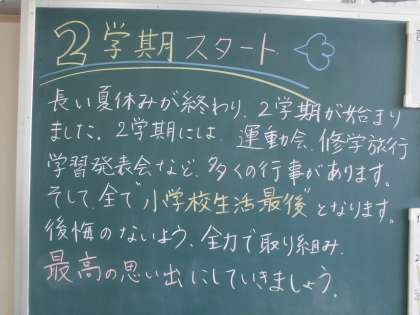 2学期スタート
長い夏休みが終わり、2学期が始まり
ました。2学期には、運動会、修学旅行
学習発表会など、多くの行事があります。
そして、全て"小学校生活最後"となります。
後悔のないよう、全力で取り組み、
最高の思い出にしていきましょう。